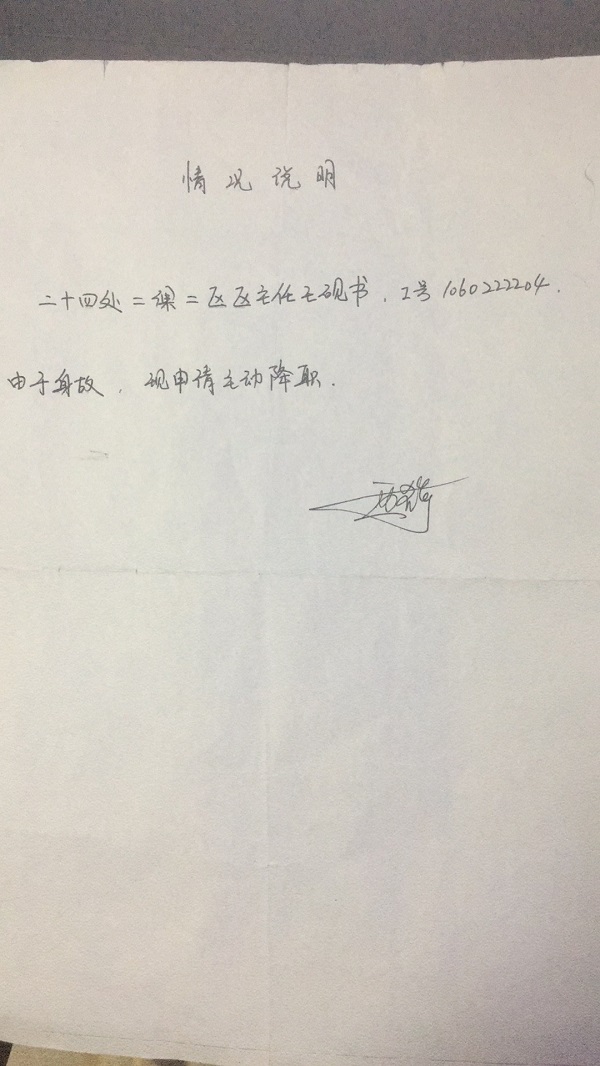 情况说明
二十四处二课二区区主任王砚书，工号1060222204.
由于身故，现申请主动降职.